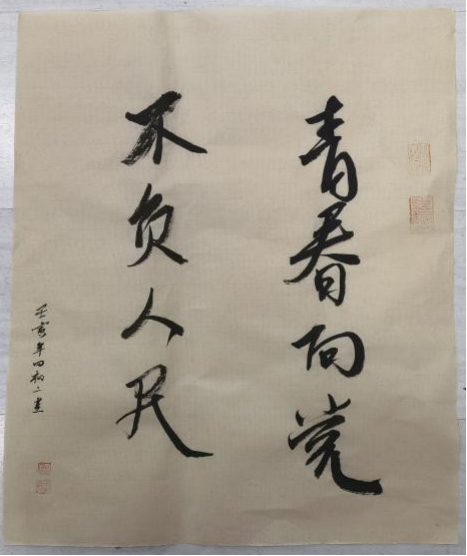 青春向党
不负人民
壬寅年四初二書